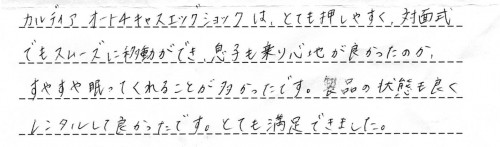 カルディア オート4キャスエッグショックは、とても押しやすく、対面式
でもスムーズに移動ができ、息子も乗り心地が良かったのか、
すやすや眠ってくれることが多かったです。製品の状態も良く
レンタルして良かったです。とても満足できました。